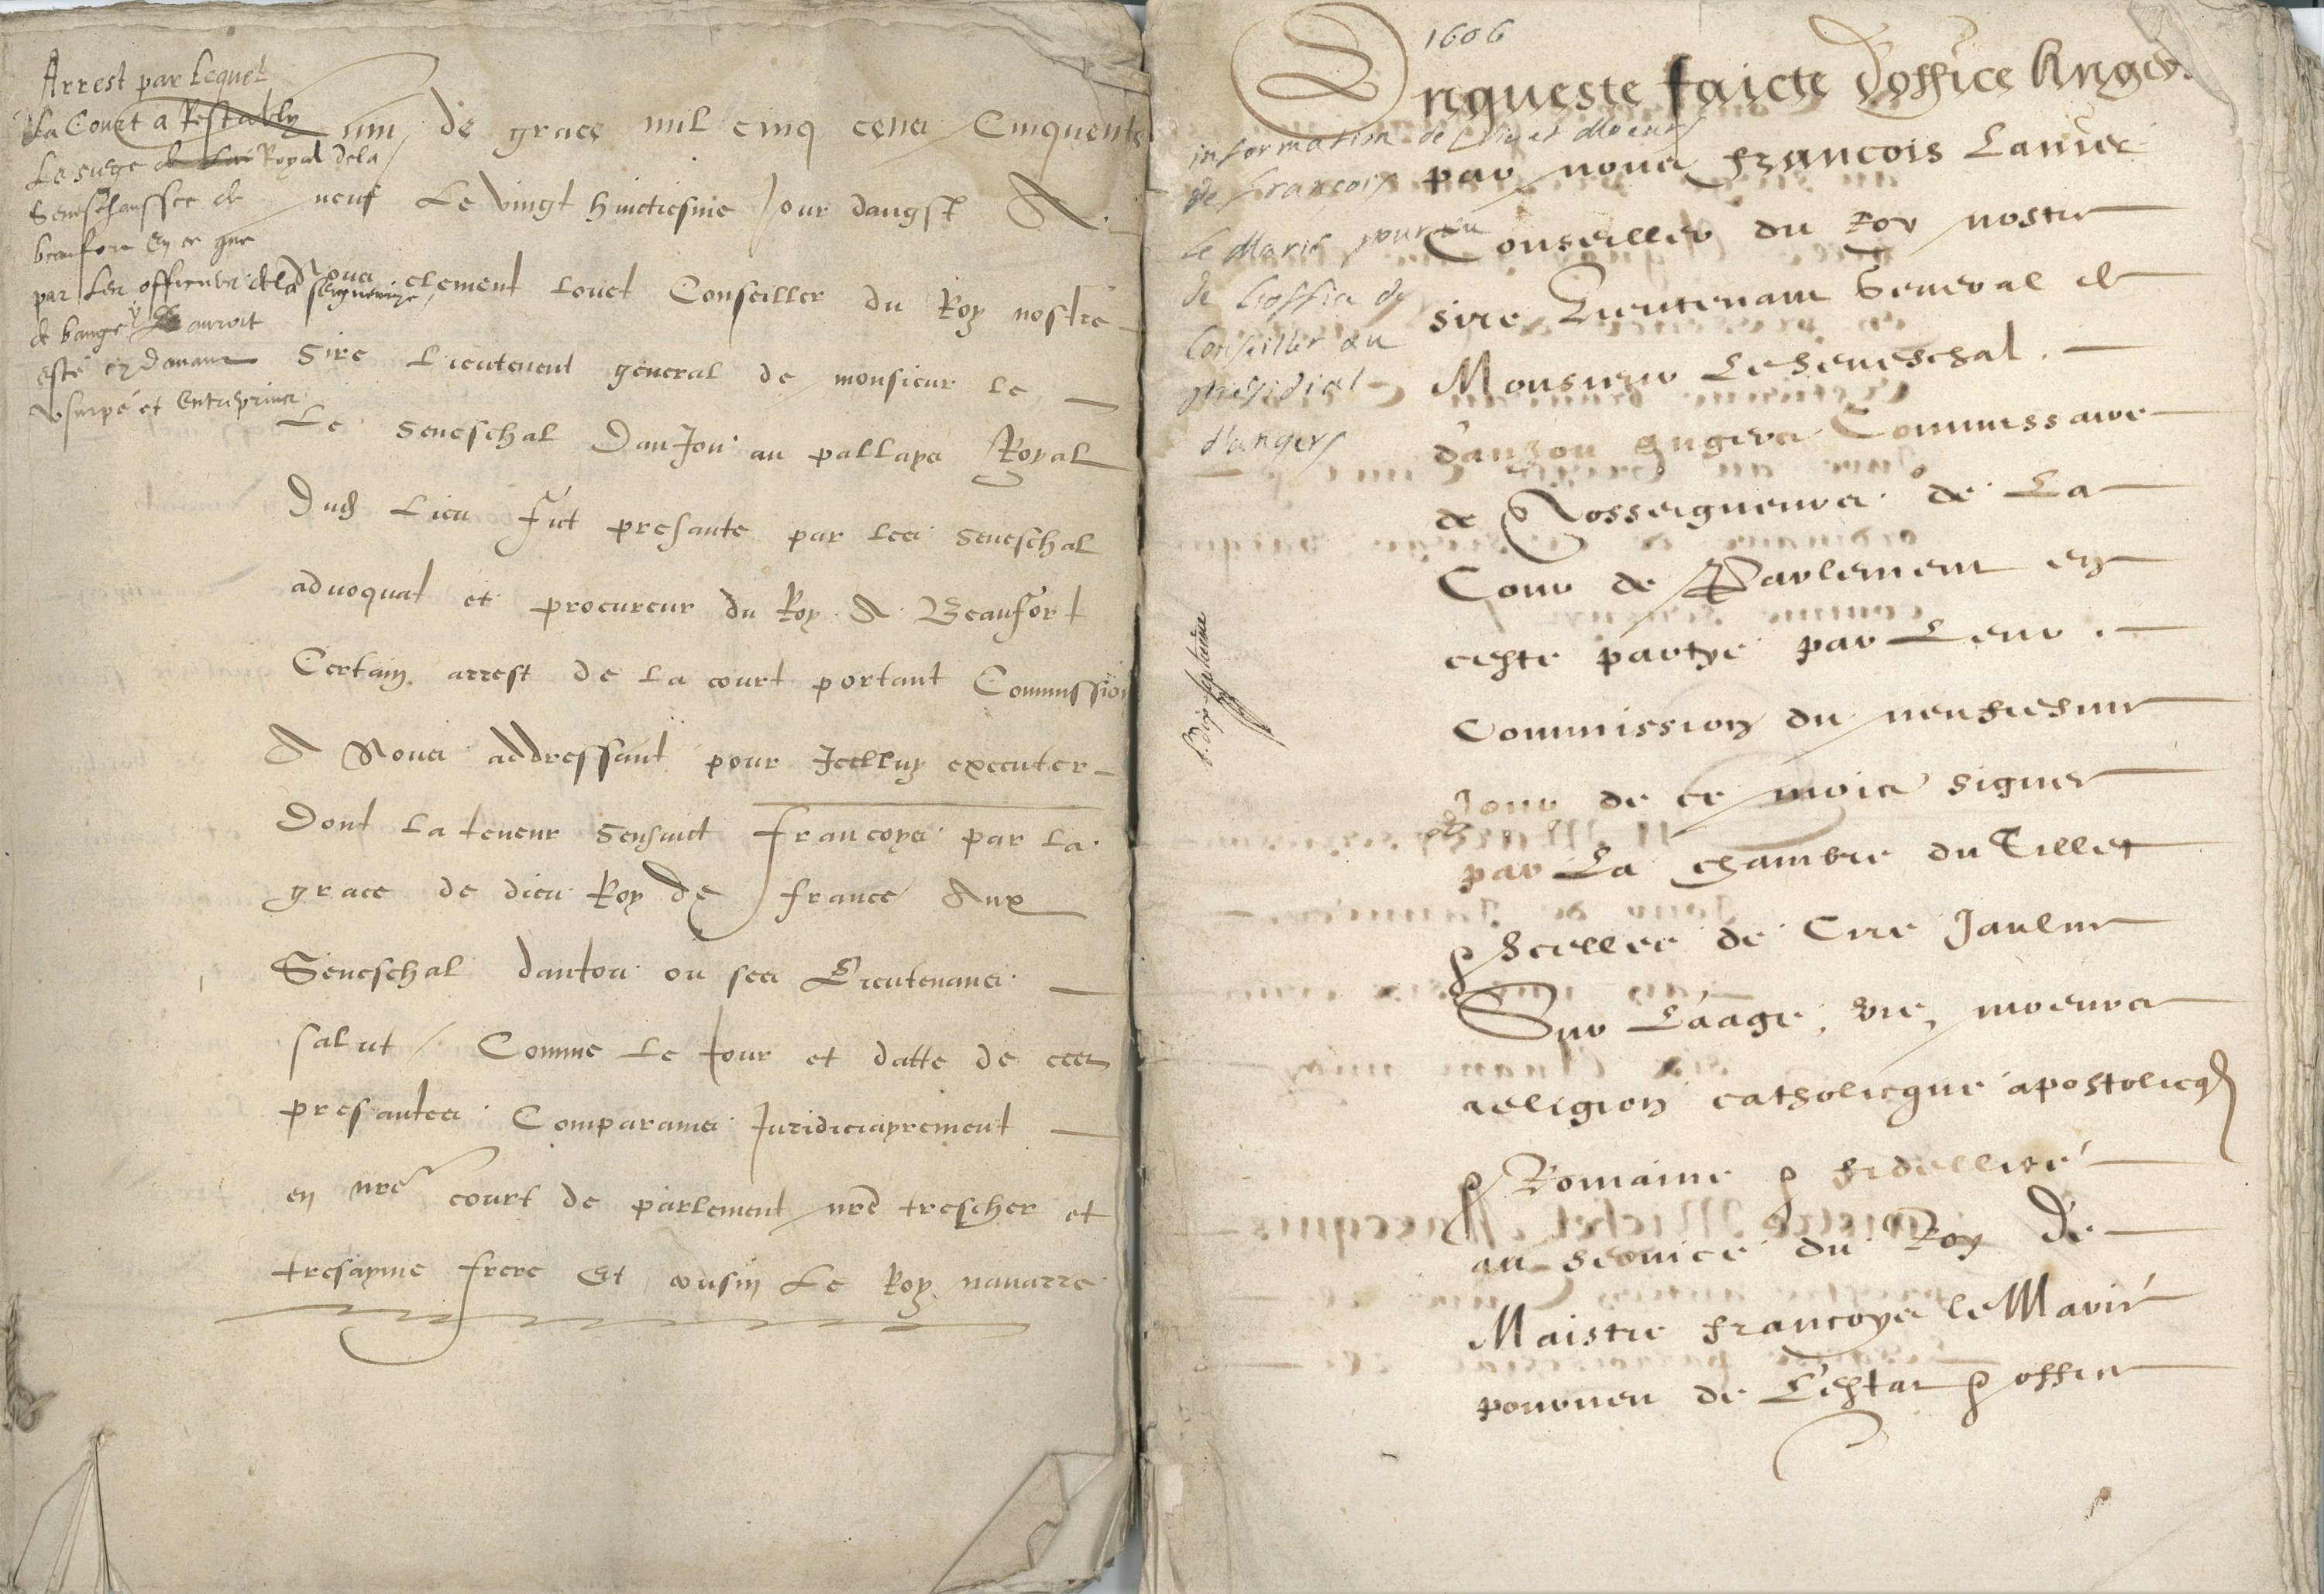 Arrest par lequel
la Court a restably
le siege de Royal de la
Seneschaussee de
beaufort en ce que
par les officiers de la seigneurie
de bauge auroit
esté cy davant
usurpé et entreprins
de grace mil cinq cens Cinquente
neuf Le vingt huictiesme jour daugst A
Nous clement louet Conseiller du Roy nostre
Sire Lieutenent general de monsieur le
Le Seneschal DanJou au pallays Royal
Dud Lieu fut presante par les seneschal
advoquat et procureur du Roy A Beaufort
Certain arrest de la court portant Commission
A Nous addressant pour Icelluy executer
Dont la teneur sensuict Francoys par la
grace de dieu Roy de france Aux
Seneschal danJou ou ses Lieutenans
salut Comme le Jour et datte de ces
presantes Comparans Juridiciayrement
en nre court de parlement nre trescher et
tresayme frere Et cousin Le Roy navarre
1606
Enqueste faicte d'office Angers
information de vie et moeurs
de Francoys
le Marié pourvu
de l'office de
Conseiller au
présidial
d'angers
par nous francois Lanier
Conseiller du Roy nostre
sire Lieutenant General de
Monsieur Le Seneschal
d'anjou Angers Commissaire
de Nosseigneurs de La
Cour de Parlement en
ceste partye par Leur
Commission du neufiesme
Jour de ce mois signee
par La chambre du Tillet
& Scellee de Cire Jaulne
Sur L'aage, vie, moeurs
religion catholicque apostolicq
& Romaine & fidellité
au service du Roy De
Maistre francoys le Marié
pourveu de L'estat & office